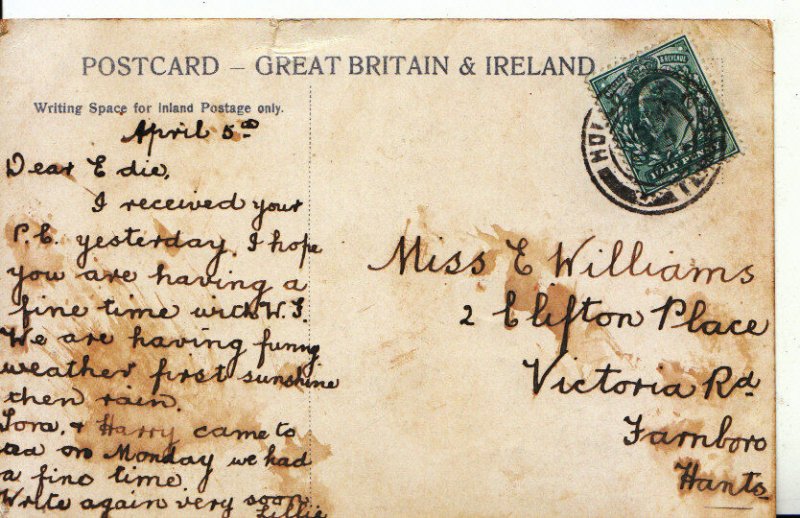 POSTCARD – GREAT BRITAIN & IRELAND
Writing Space for Inland Postage only.
April 5th
Dear Edie,
I received your
P.C. yesterday. I hope
you are having a
fine time with W.S.
We are having funny
weather first sunshine
then rain.
& Harry came to
tea on Monday we had
a fine time.
Write again very soon
Lillie
Miss E Williams
2 Clifton Place
Victoria Rd
Farnboro
Hants
& REVENUE
HALFPENNY
HOL